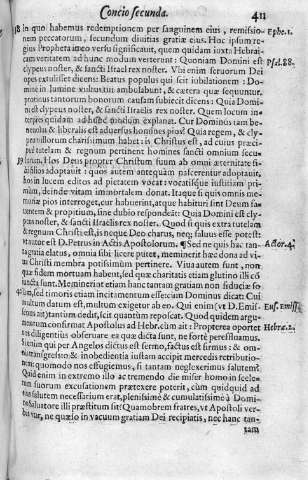 Concio secunda. 411
18 in quo habemus redemptionem per sanguinem eius, remissio- Ephe. 1.
nem peccatorum, secundum diuitias gratiæ eius. Hoc ipsum re-
gius Propheta imeo versu significauit, quem quidam iuxta Hebrai-
cam veritatem ad hunc modum verterunt: Quoniam Domini est Psal. 88.
clypeus noster, & sancti Israel rex noster. Vbi enim seruorum Dei
opes extulisset dicens: Beatus populus qui scit iubilationem: Do-
mine in lumine vultus tui ambulabunt, & cætera quæ sequuntur,
protinus tantorum bonorum causam subiecit dicens: Quia Domini
est clypeus noster, & sancti Israelis rex noster. Quem locum in-
terpres quidam ad hunc modum explanat. Cur Dominus tam be-
neuolus & liberalis est aduersus homines pios? Quia regem, & cly-
peum illorum charissimum habet: is Christus est, ad cuius præci-
puè tutelam & regnum pertinent homines sancti omnium secu-
19 lorum. Hos Deus propter Christum suum ab omni æternitate fi-
lios adoptauit: quos autem antequam nascerentur adoptauit,
hos in lucem editos ad pietatem vocat: vocatisque iustitiam pri-
mùm, deinde vitam immortalem donat. Itaque si quis omnis me-
moriæ pios interroget, cur habuerint, atque habituri sint Deum fa-
uentem & propitium, sine dubio respondebit: Quia Domini est cly-
peus noster, & sancti Israelis rex noster. Quod si quis extra tutelam
& regnum Christi est, is neque Deo charus, neque saluus esse potest,
vt autor est D. Petrus in Actis Apostolorum. ¶ Sed ne quis hæc tan- Actor. 4.
ta gratia elatus, omnia sibi licere putet, meminerit hæc dona ad vi-
ua Christi membra potissimùm pertinere. Viua autem sunt, non
quæ fidem mortuam habent, sed quæ charitatis etiam glutino illi con-
iuncta sunt. Meminerint etiam hanc tantam gratiam non fiduciæ so-
lùm, sed timoris etiam incitamentum esse: cùm Dominus dicat: Cui
multum datum est, multum exigetur ab eo. Qui enim (vt D. Emis- Eus. Emiss.
senus ait) tantum dedit, scit quantùm reposcat. Quod quidem argu-
mentum confirmat Apostolus ad Hebr. cùm ait: Propterea oportet Hebræ. 2.
nos diligentiùs obseruare ea quæ dicta sunt, ne fortè pereffluamus.
Si enim qui per Angelos dictus est sermo, factus est firmus: & om-
nis transgressio & inobedientia iustam accipit mercedis retributio-
nem: quomodo nos effugiemus, si tantam neglexerimus salutem?
Quid enim in extremo illo ac tremendo die miser homo in scelerum
suorum excusationem prætexere poterit, cùm quidquid ad
salutem necessarium erat, plenissimè & cumulatissimè à Domi-
no Saluatore illi præstitum sit? Quamobrem fratres, vt Apostoli ver-
bis vtar, ne quæso in vacuum gratiam Dei recipiatis, nec hanc tan-
tam